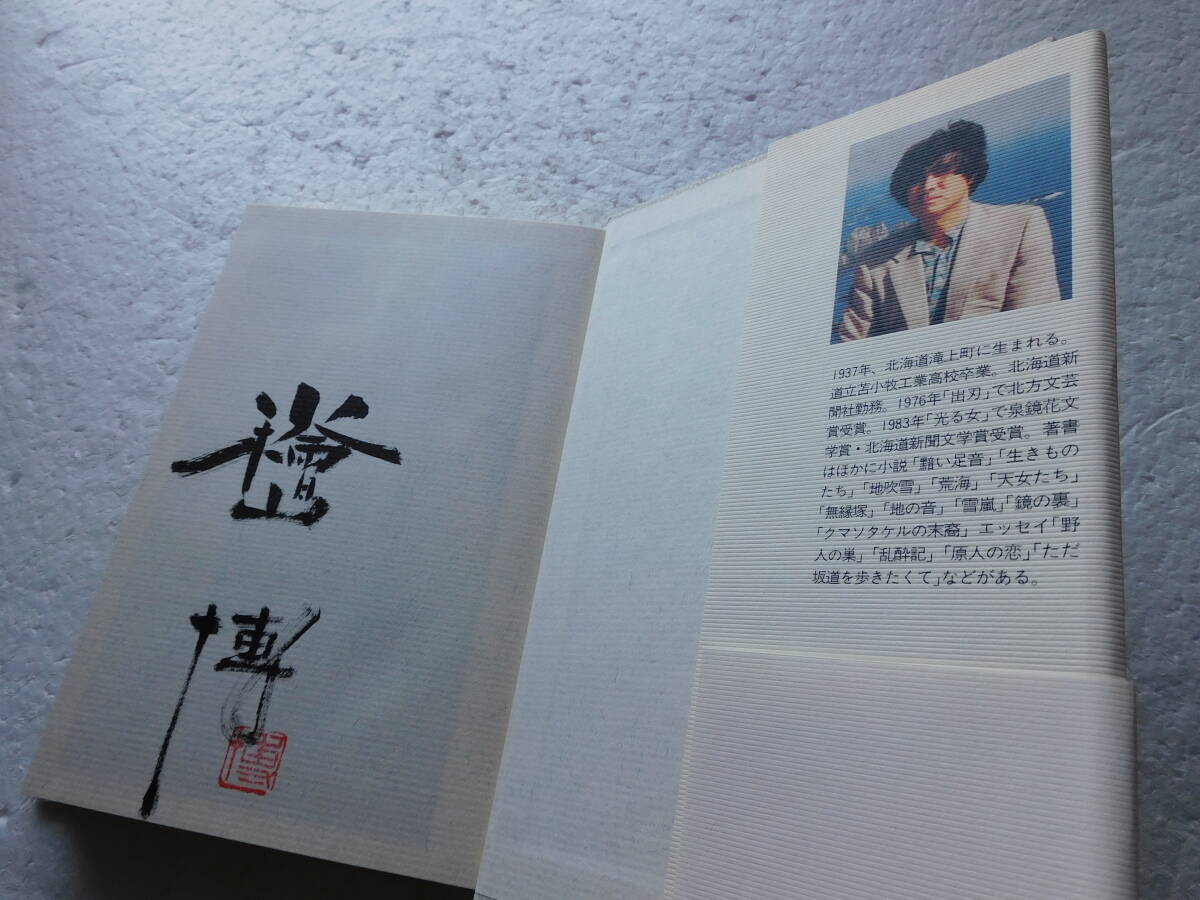 小檜山
博
1937年、北海道滝上町に生まれる。
道立苫小牧工業高校卒業。北海道新
聞社勤務。1976年「出刃」で北方文芸
賞受賞。1983年「光る女」で泉鏡花文
学賞・北海道新聞文学賞受賞。著書
はほかに小説「黯い足音」「生きもの
たち」「地吹雪」「荒海」「天女たち」
「無縁塚」「地の音」「雪嵐」「鏡の裏」
「クマソタケルの末裔」エッセイ「野
人の巣」「乱酔記」「原人の恋」「ただ
坂道を歩きたくて」などがある。